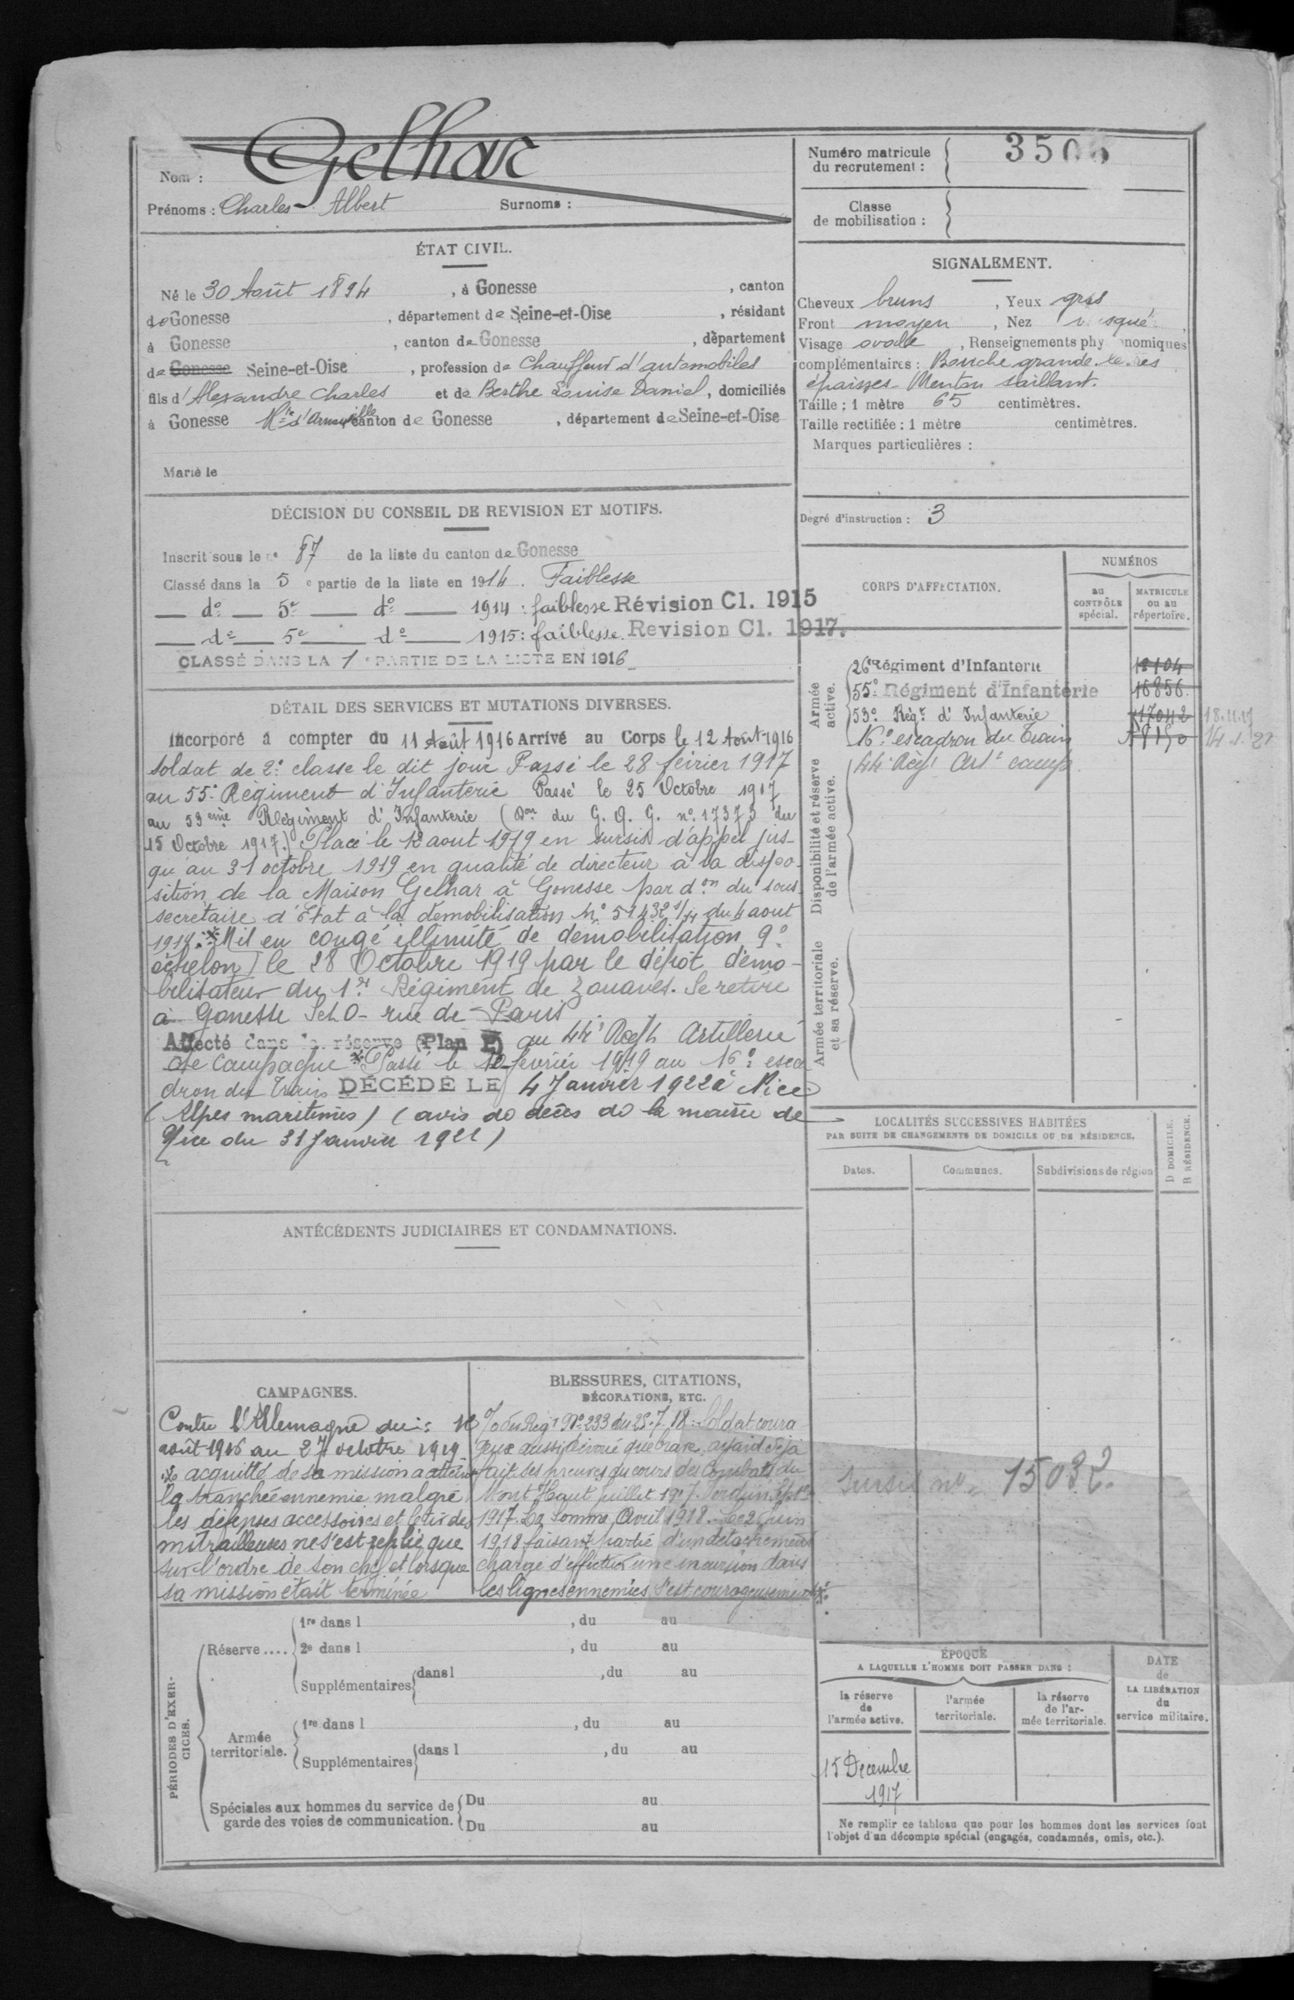 Nom : Gelhar
Prénoms : Charles Albert Surnoms :
Numéro matricule
du recrutement : 3506
Classe
de mobilisation :
ÉTAT CIVIL.
Né le 30 Août 1894, à Gonesse, canton
de Gonesse, département de Seine-et-Oise, résidant
à Gonesse, canton de Gonesse, département
de Gonesse Seine-et-Oise, profession de Chauffeur d'automobiles
fils d'Alexandre Charles et de Berthe Louise Daniel, domiciliés
à Gonesse canton de Gonesse, département de Seine-et-Oise
Marié le
SIGNALEMENT.
Cheveux bruns, Yeux gris
Front moyen, Nez
Visage ovale, Renseignements phy nomiques
complémentaires : Bouche grande
épaisses Menton saillant.
Taille : 1 mètre 65 centimètres.
Taille rectifiée : 1 mètre centimètres.
Marques particulières :
Degré d'instruction : 3
DÉCISION DU CONSEIL DE REVISION ET MOTIFS.
Inscrit sous le n° 87 de la liste du canton de Gonesse
Classé dans la 5e partie de la liste en 1914. Faiblesse
— do — 5e — do — 1914 : faiblesse Révision Cl. 1915
— do — 5e — do — 1915 : faiblesse. Revision Cl. 1917.
CLASSÉ DANS LA 1e PARTIE DE LA LISTE EN 1916
CORPS D'AFFECTATION.
NUMÉROS
au
CONTRÔLE
spécial.
MATRICULE
ou au
répertoire.
Armée
active.
26e Régiment d'Infanterie
55e Régiment d'Infanterie 16856
53e Régt d'Infanterie 17042
16e escadron du Train
Disponibilité et réserve
de l'armée active.
44e Regt Artie camp
Armée territoriale
et sa réserve.
DÉTAIL DES SERVICES ET MUTATIONS DIVERSES.
Incorporé à compter du 11 Août 1916 Arrivé au Corps le 12 Août 1916
soldat de 2e classe le dit jour Passé le 28 février 1917
au 55e Regiment d'Infanterie Passé le 25 Octobre 1917
au 53eme Régiment d'Infanterie (Don du G. Q. G. no 17373 du
15 Octobre 1917.) Placé le 12 aout 1919 en sursis d'appel jus-
qu'au 31 octobre 1919 en qualité de directeur à la dispo-
sition de la Maison Gelhar à Gonesse par don du sous
secretaire d'Etat à la démobilisation No 51432 1/11 du 4 aout
1919.* Mis en congé illimité de démobilisation 9e
échelon I le 28 Octobre 1919 par le dépot démo-
bilisateur du 1er Régiment de Zouaves. Se retire
à Gonesse S et O - rue de Paris
Affecté dans la réserve (Plan P) au 44e Regt Artillerie
de campagne *Passé le 12 février 1919 au 16e esca
dron du Train DÉCÉDÉ LE 4 Janvier 1922 à Nice
(Alpes maritimes) (avis de décès de la mairie de
Nice du 31 Janvier 1921)
LOCALITÉS SUCCESSIVES HABITÉES
PAR SUITE DE CHANGEMENTS DE DOMICILE OU DE RÉSIDENCE.
Dates. Communes. Subdivisions de région
D DOMICILE.
R RÉSIDENCE.
ANTÉCÉDENTS JUDICIAIRES ET CONDAMNATIONS.
CAMPAGNES.
Contre l'Allemagne du : 12
août 1916 au 27 octobre 1919
acquitté de sa mission a atteint
la tranchée ennemie malgré
les défenses accessoires et le tir des
mitrailleuses ne s'est replié que
sur l'ordre de son chef et lorsque
sa mission était terminée
BLESSURES, CITATIONS,
DÉCORATIONS, ETC.
O du Regt No 233 du 25.7.18. Soldat coura
geux aussi dévoué que brave, ayant déjà
fait ses preuves au cours des combats du
Mont Haut juillet 1917. Verdun Septe
1917. La Somme, Avril 1918. Le 2 Juin
1918 faisant partie d'un detachement
chargé d'effectuer une incursion dans
les lignes ennemies s'est courageusement
sursis no 15032.
PÉRIODES D'EXER-
CICES.
Réserve.... 1re dans l , du au
2e dans l , du au
Supplémentaires dans l , du au
Armée
territoriale. 1re dans l , du au
Supplémentaires dans l , du au
Spéciales aux hommes du service de
garde des voies de communication. Du au
Du au
ÉPOQUE
A LAQUELLE L'HOMME DOIT PASSER DANS :
la réserve
de
l'armée active.
l'armée
territoriale.
la réserve
de l'ar-
mée territoriale.
DATE
de
LA LIBÉRATION
du
service militaire.
15 Decembre
1917
Ne remplir ce tableau que pour les hommes dont les services font
l'objet d'un décompte spécial (engagés, condamnés, omis, etc.).